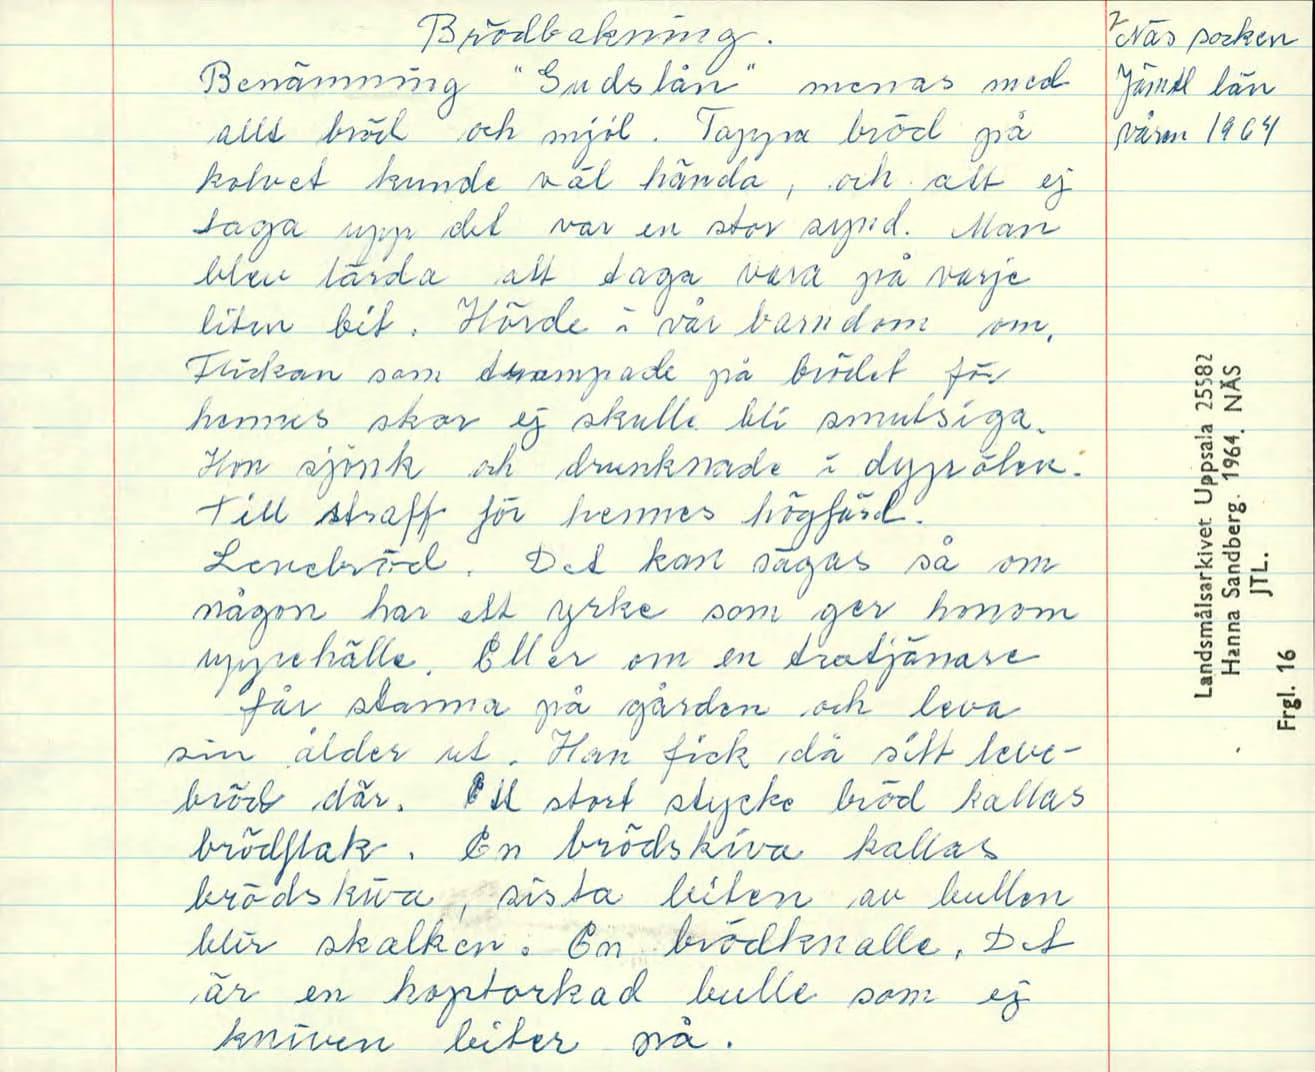 Brödbakning.
Benämning "Gudslån" menas med
allt bröd och mjöl. Tappa bröd på
kolvet kunde väl hända, och att ej
taga upp det var en stor synd. Man
blev lärda att taga vara på varje
liten bit. Hörde i vår barndom om.
Flickan som trampade på brödet för
hennes skor ej skulle bli smutsiga.
Hon sjönk och drunknade i dypölen.
Till straff för hennes högfärd.
Levebröd. Det kan sägas så om
någon har ett yrke som ger honom
uppehälle. Eller om en trotjänare
får stanna på gården och leva
sin ålder ut. Han fick då sitt leve-
bröd där. Ett stort stycke bröd kallas
brödflak. En brödskiva kallas
brödskiva, sista biten av bullen
blir skalken. En brödknalle. Det
är en hoptorkad bulle som ej
kniven biter på.
2
Näs socken
Jämtl län
våren 1964
Landsmålsarkivet Uppsala 25582
Hanna Sandberg. 1964. NÄS
JTL.
Frgl. 16